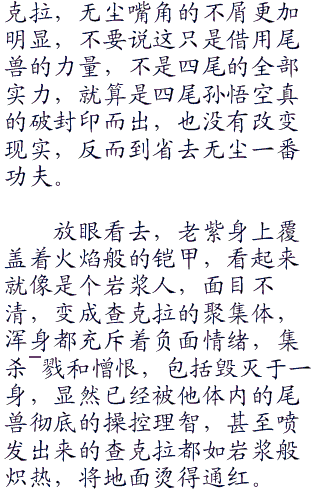 克拉，无尘嘴角的不屑更加
明显，不要说这只是借用尾
兽的力量，不是四尾的全部
实力，就算是四尾孙悟空真
的破封印而出，也没有改变
现实，反而到省去无尘一番
功夫。
放眼看去，老紫身上覆
盖着火焰般的铠甲，看起来
就像是个岩浆人，面目不
清，变成查克拉的聚集体，
浑身都充斥着负面情绪，集
杀¯戮和憎恨，包括毁灭于一
身，显然已经被他体内的尾
兽彻底的操控理智，甚至喷
发出来的查克拉都如岩浆般
炽热，将地面烫得通红。